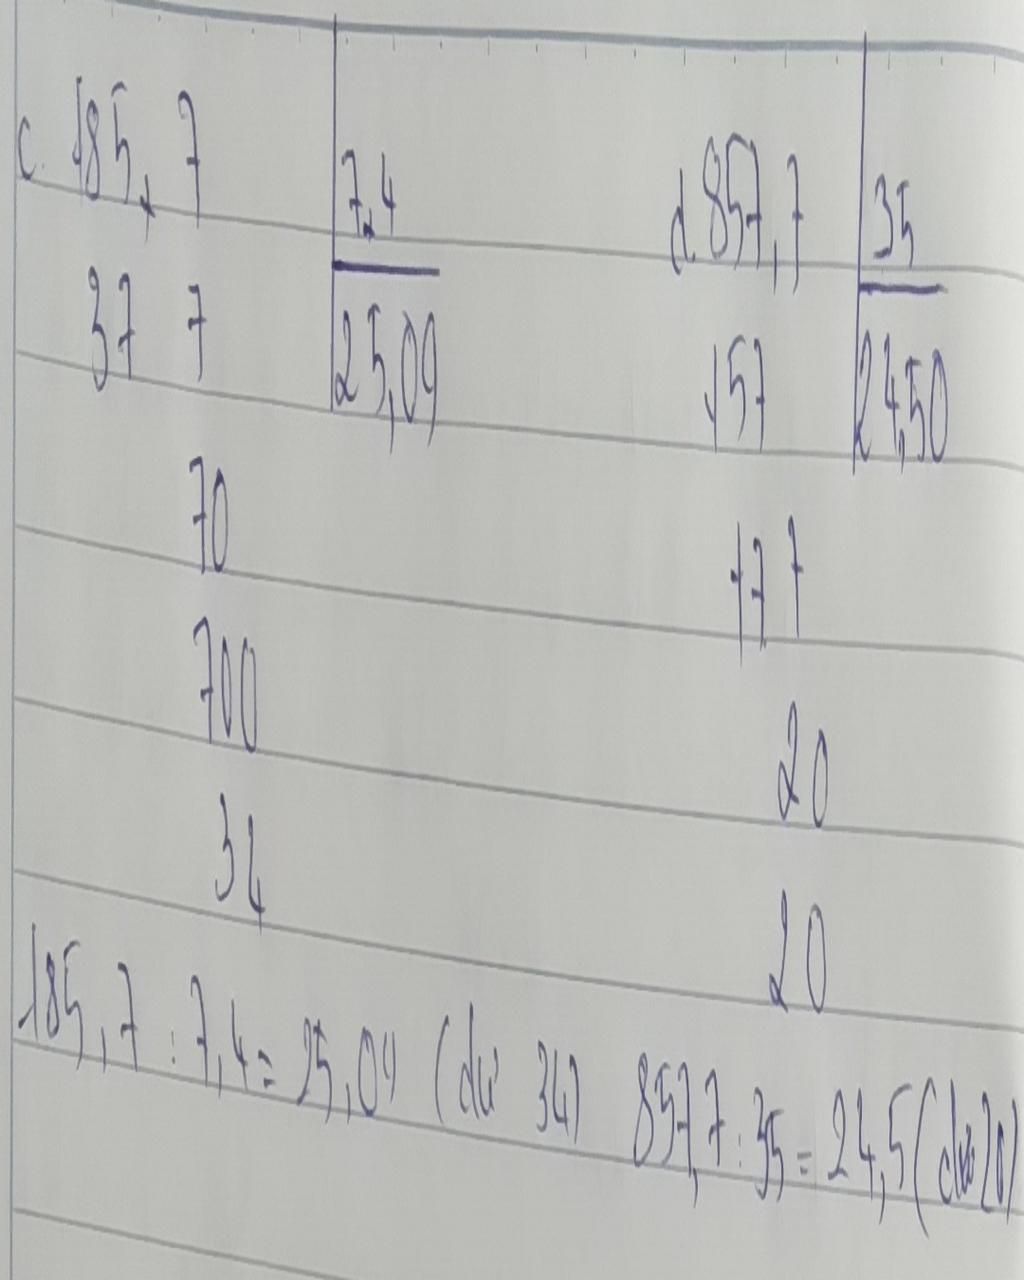 c. 185,7 7,4 d. 857,7 35
37 7 25,09 157 24,50
70 17 7
700 20
34 20
185,7 : 7,4 = 25,09 (dư 34) 857,7 : 35 = 24,5 (dư 20)